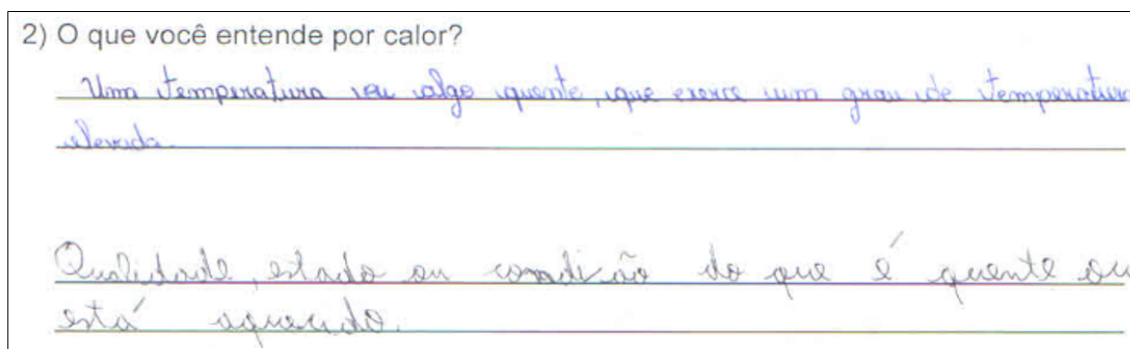 2) O que você entende por calor?
Um temperatura ou algo quente, que exerce um grau de temperatura
elevada.
Qualidade, estado ou condição do que é quente ou
está aquecido.